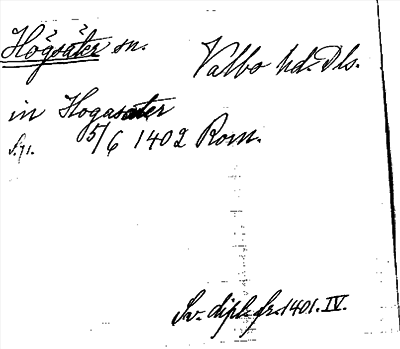 Högsäter sn. Valbo hd. Dls.
in Hogasater
S. 71. 5/6 1402 Rom.
Sv. dipl. fr. 1401. IV.